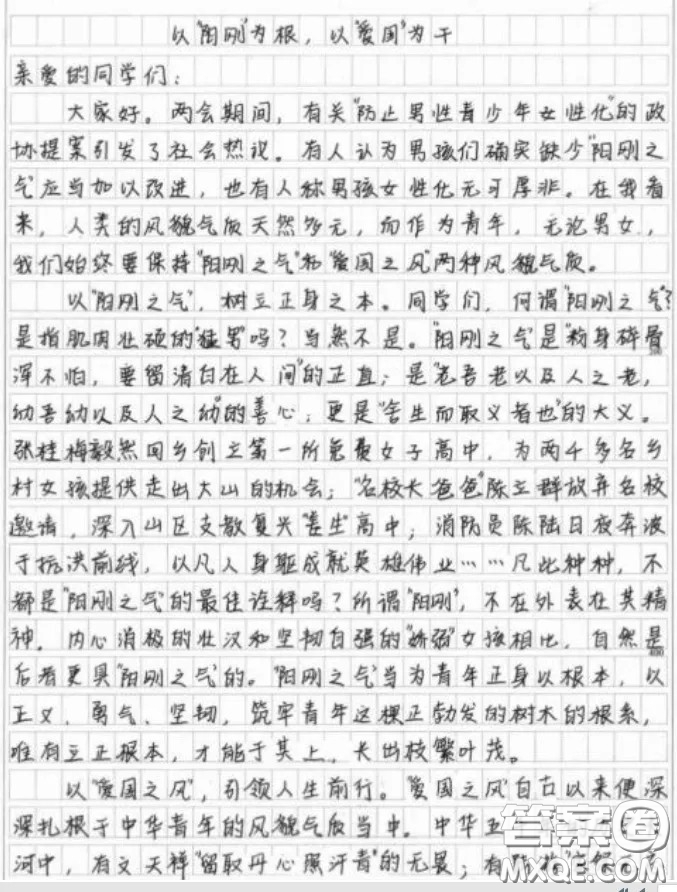 以“阳刚”为根，以“爱国”为干
亲爱的同学们：
大家好。两会期间，有关“防止男性青少年女性化”的政
协提案引发了社会热议。有人认为男孩们确实缺少“阳刚之
气”应当加以改进，也有人称男孩女性化无可厚非。在我看
来，人类的风貌气质天然多元，而作为青年，无论男女，
我们始终要保持“阳刚之气”和“爱国之风”两种风貌气质。
以“阳刚之气”，树立正身之本。同学们，何谓“阳刚之气”？
是指肌肉壮硕的“猛男”吗？当然不是。“阳刚之气”是“粉身碎骨
浑不怕，要留清白在人间”的正直；是“老吾老以及人之老，
幼吾幼以及人之幼”的善心；更是“舍生而取义者也”的大义。
张桂梅毅然回乡创立第一所免费女子高中，为两千多名乡
村女孩提供走出大山的机会；“名校长爸爸”陈立群放弃名校
邀请，深入山区支教复兴“差生”高中；消防员陈陆日夜奔波
于抗洪前线，以凡人身躯成就英雄伟业……凡此种种，不
都是“阳刚之气”的最佳诠释吗？所谓“阳刚”，不在外表在其精
神。内心消极的壮汉和坚韧自强的“娇弱”女孩相比，自然是
后者更具“阳刚之气”的。“阳刚之气”当为青年正身以根本，以
正义、勇气、坚韧，筑牢青年这棵正勃发的树木的根系，
唯有立正根本，才能于其上，长出枝繁叶茂。
以“爱国之风”，引领人生前行。“爱国之风”自古以来便深
深扎根于中华青年的风貌气质当中。中华五
河中，有文天祥“留取丹心照汗青”的无畏；有
答案圈
MXQE.COM